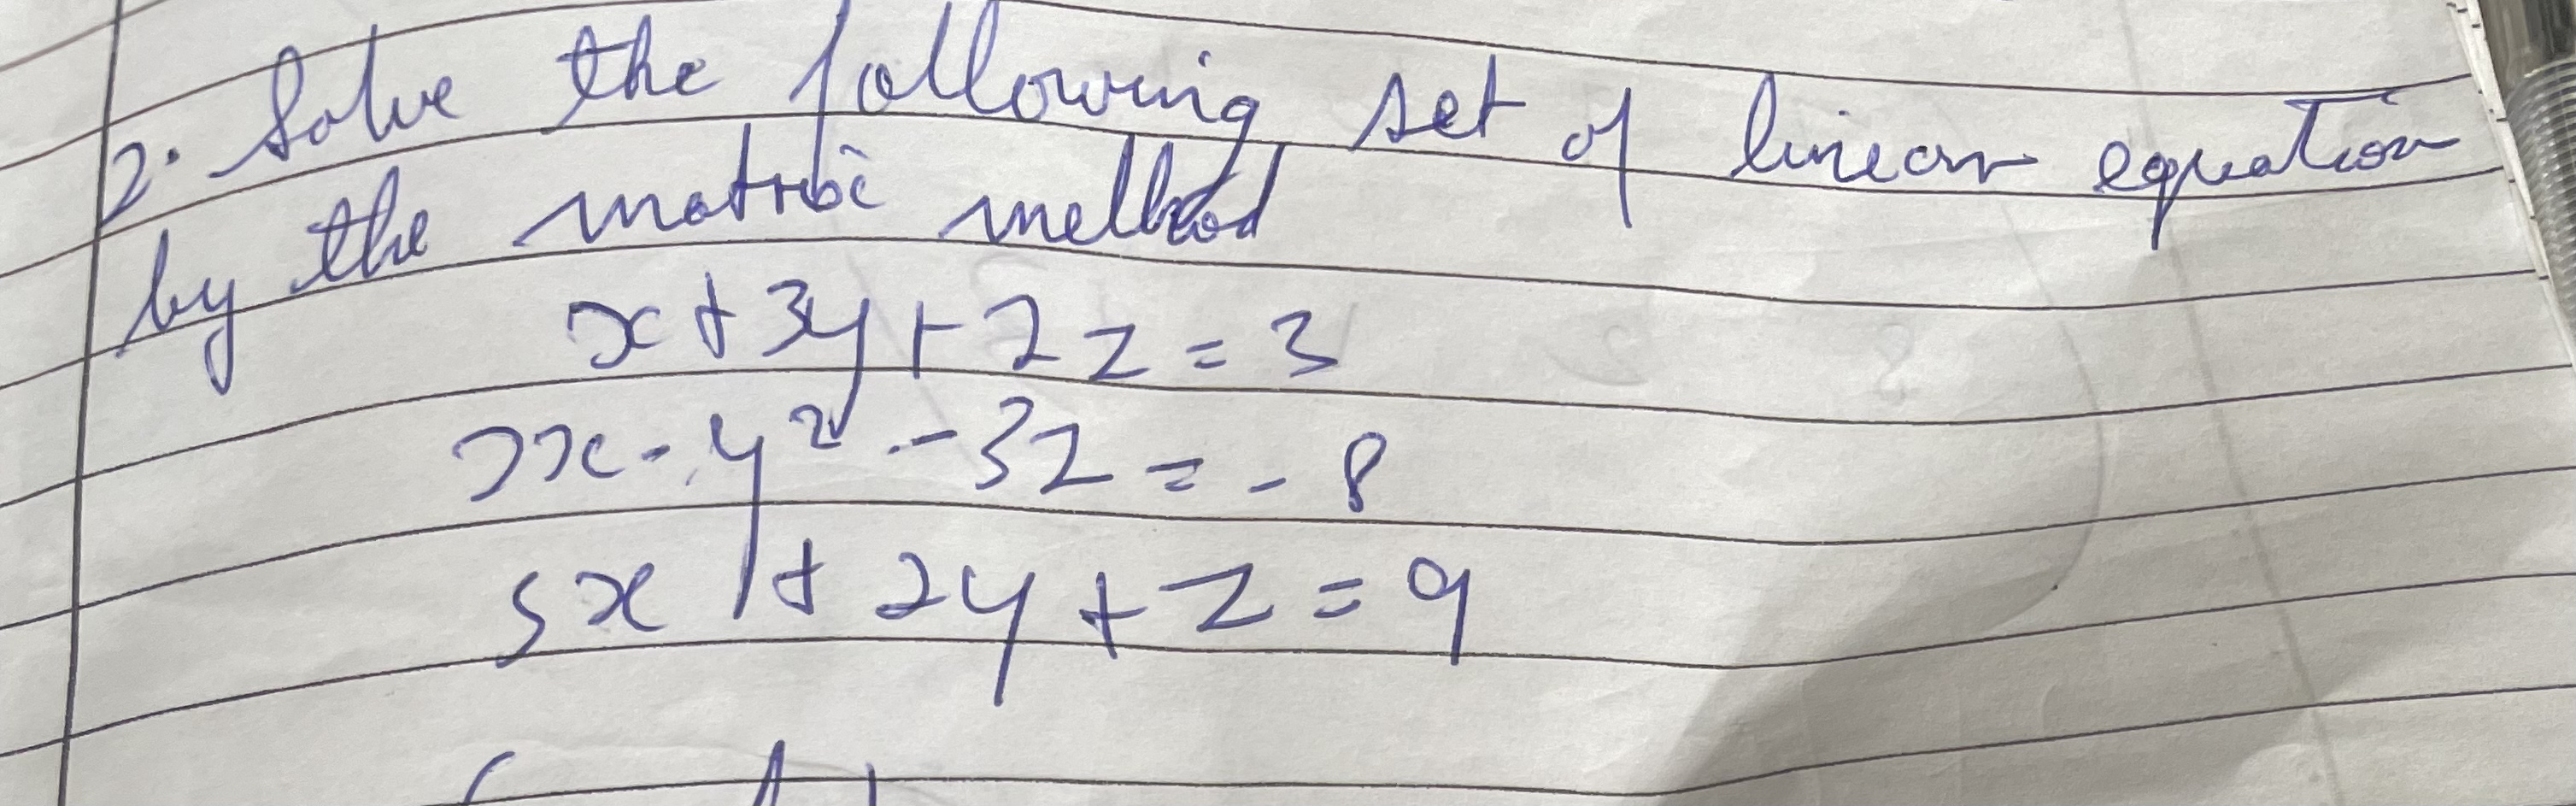 2. Solve the following set of linear equation
by the matrix method
x + 3y + 2z = 3
2x - y² - 3z = -8
5x + 2y + z = 9